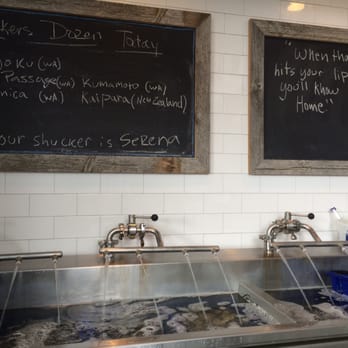 kers Dozen Today
jo Ku (WA)
Passage (WA) Kumamoto (WA)
nica (WA) Kaipara (New Zealand)
our shucker is Serena
"When th
hits your lip
you'll know
Home."